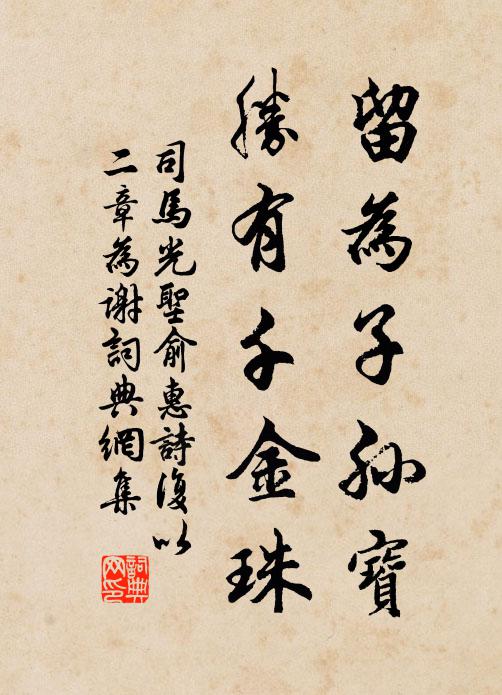 留為子孫寶
勝有千金珠
司馬光聖俞惠詩復以
二章為謝詞典網集
詞典网印